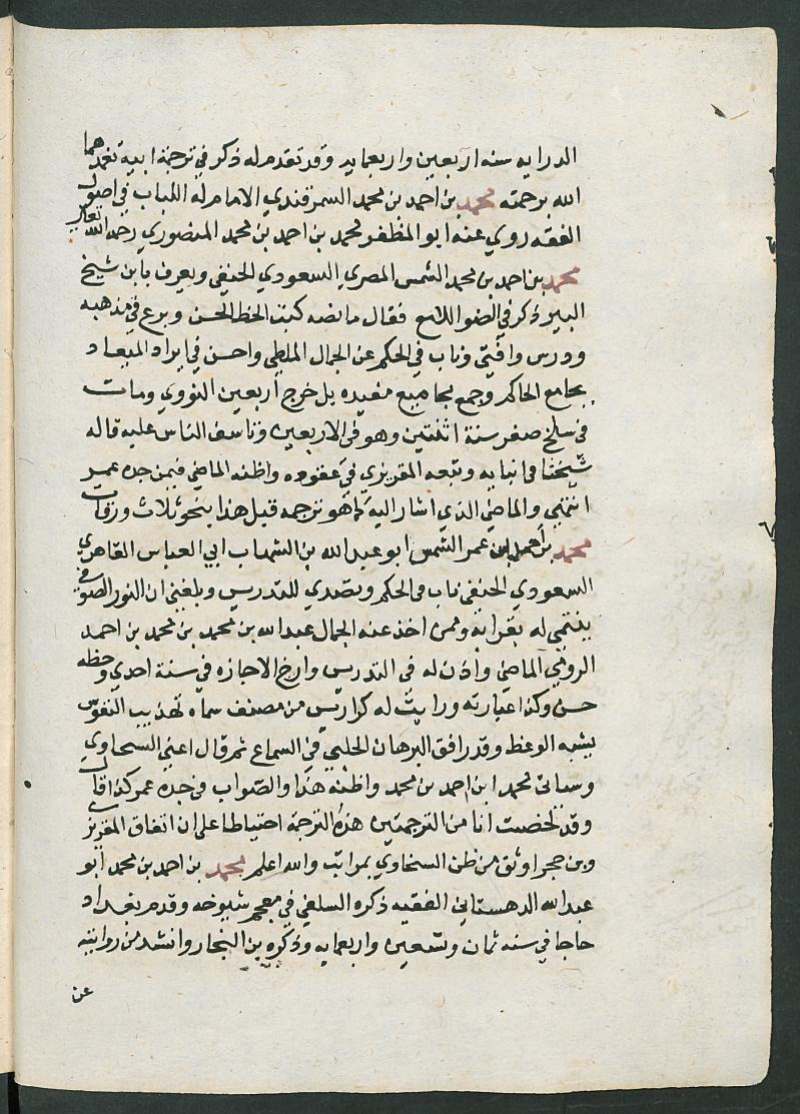 الدرايه سنه اربعين واربعمايه وقد تقدم له ذكر في ترجمة ابيه تغمدهما
الله برحمته محمد بن احمد بن محمد السمرقندي الامام له اللباب في اصول
الفقه روي عنه ابو المظفر محمد بن احمد بن محمد المنصوري رحمه الله تعالي
محمد بن احمد بن محمد الشمس المصري السعودي الحنفي ويعرف بابن شيخ
البير ذكر في الضو اللامع فقال ما نصه كتب الخط الحسن وبرع في مذهبه
ودرس وافتي وناب في الحكم عن الجمال الملطي واحسن في ايراد الميعاد
بجامع الحاكم وجمع مجاميع مفيده بل خرج اربعين النووي ومات
في سلخ صفر سنة اثنتين وهو في الاربعين وتاسف الناس عليه قاله
شيخنا في انبايه وتبعه المقريزي في عقوده واظنه الماضي فيمن جده عمر
انتهي والماضي الذي اشار اليه كما هو ترجمه قبل هذا بنحو ثلاث ورقات
محمد بن احمد بن عمر الشمس ابو عبد الله بن الشهاب ابي العباس القاهري
السعودي الحنفي ناب في الحكم وتصدي للتدريس وبلغني ان النور الصوفي
ينتمي له بقرابه وممن اخذ عنه الجمال عبد الله بن محمد بن محمد بن احمد
الرومي الماضي واذن له في التدريس وارخ الاجازه في سنة احدي وخطه
حسن وكذا عبارته ورايت له كراريس من مصنف سماه تهذيب النفوس
يشبه الوعظ وقد رافق البرهان الحلبي في السماع ثم قال اعني السخاوي
وسياتي محمد ابن احمد بن محمد واظنه هذا والصواب في جده عمر كذا قال
وقد لخصت انا من الترجمتين هذه الترجمة احتياطا علي ان اتفاق المقريزي
وبن حجر اوثق من ظن السخاوي بمراتب والله اعلم محمد بن احمد بن محمد ابو
عبد الله الدهستاني الفقيه ذكره السلفي في معجم شيوخه وقدم بغداد
حاجا في سنه ثمان وتسعين واربعمايه وذكره بن النجار وانشد من روايته
عن